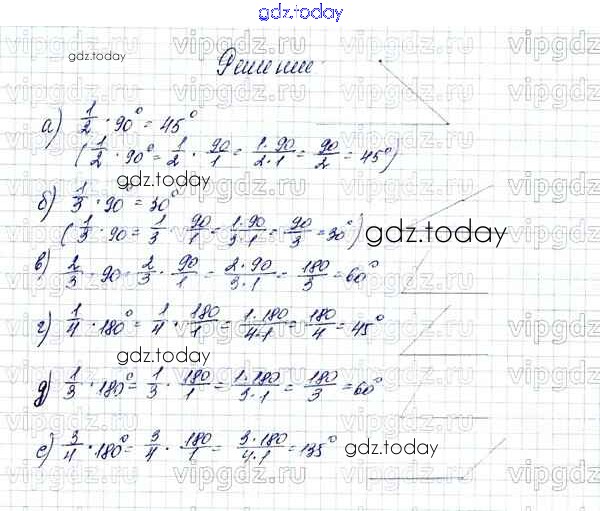 gdz.today
vipgdz.ru
gdz.today
Решение
а) 1/2 · 90° = 45°
(1/2 · 90° = 1/2 · 90/1 = 1·90/2·1 = 90/2 = 45°)
gdz.today
б) 1/3 · 90° = 30°
(1/3 · 90 = 1/3 · 90/1 = 1·90/3·1 = 90/3 = 30°)
gdz.today
в) 2/3 · 90 = 2/3 · 90/1 = 2·90/3·1 = 180/3 = 60°
г) 1/4 · 180° = 1/4 · 180/1 = 1·180/4·1 = 180/4 = 45°
gdz.today
д) 1/3 · 180° = 1/3 · 180/1 = 1·180/3·1 = 180/3 = 60°
е) 3/4 · 180° = 3/4 · 180/1 = 3·180/4·1 = 135°
gdz.today